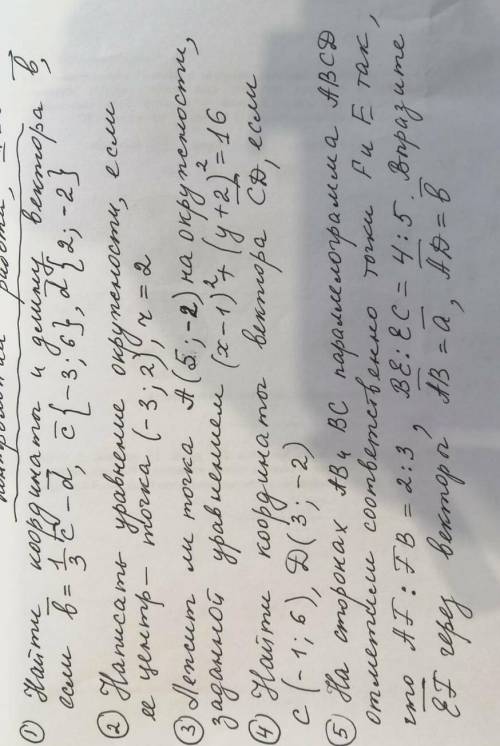 контрольная работа,
① Найти координаты и длину вектора b̅,
если b̅ = 1/3 c̅ − d̅, c̅ {−3; 6}, d̅ {2; −2}
② Написать уравнение окружности, если
ее центр – точка (−3; 2), r = 2
③ Лежит ли точка А(5; −2) на окружности,
заданной уравнением (x−1)² + (y+2)² = 16
④ Найти координаты вектора C̅D̅, если
C(−1; 6), D(3; −2)
⑤ На сторонах AB и BC параллелограмма ABCD
отметили соответственно точки F и E так,
что AF : FB = 2:3, BE : EC = 4:5. Выразите
E̅F̅ через векторы, A̅B̅ = a̅, A̅D̅ = b̅